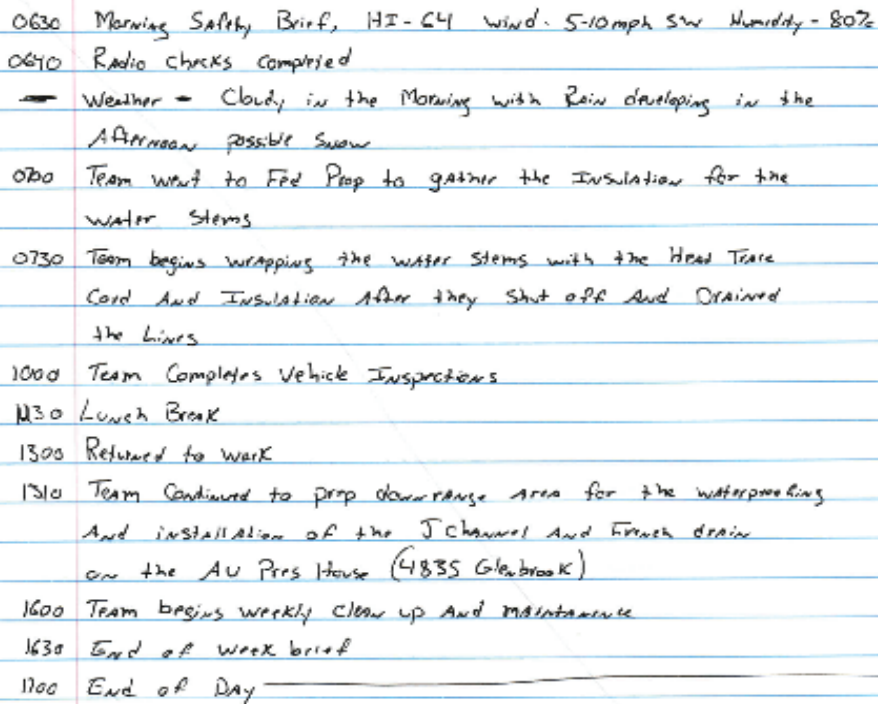 0630 Morning Safety Brief, HI-64 wind. 5-10mph SW Humidity-80%
0640 Radio checks completed
- Weather - Cloudy in the Morning with Rain developing in the
Afternoon possible Snow
0700 Team went to Fed Prop to gather the Insulation for the
water stems
0730 Team begins wrapping the water stems with the Heat Trace
Cord And Insulation After they shut off And Drained
the Lines
1000 Team Completes Vehicle Inspections
1130 Lunch Break
1300 Returned to work
1310 Team Continued to prep downrange area for the waterproofing
And installation of the J Channel And French drain
on the AU Pres House (4835 Glenbrook)
1600 Team begins weekly clean up And maintanence
1630 End of week brief
1700 End of Day